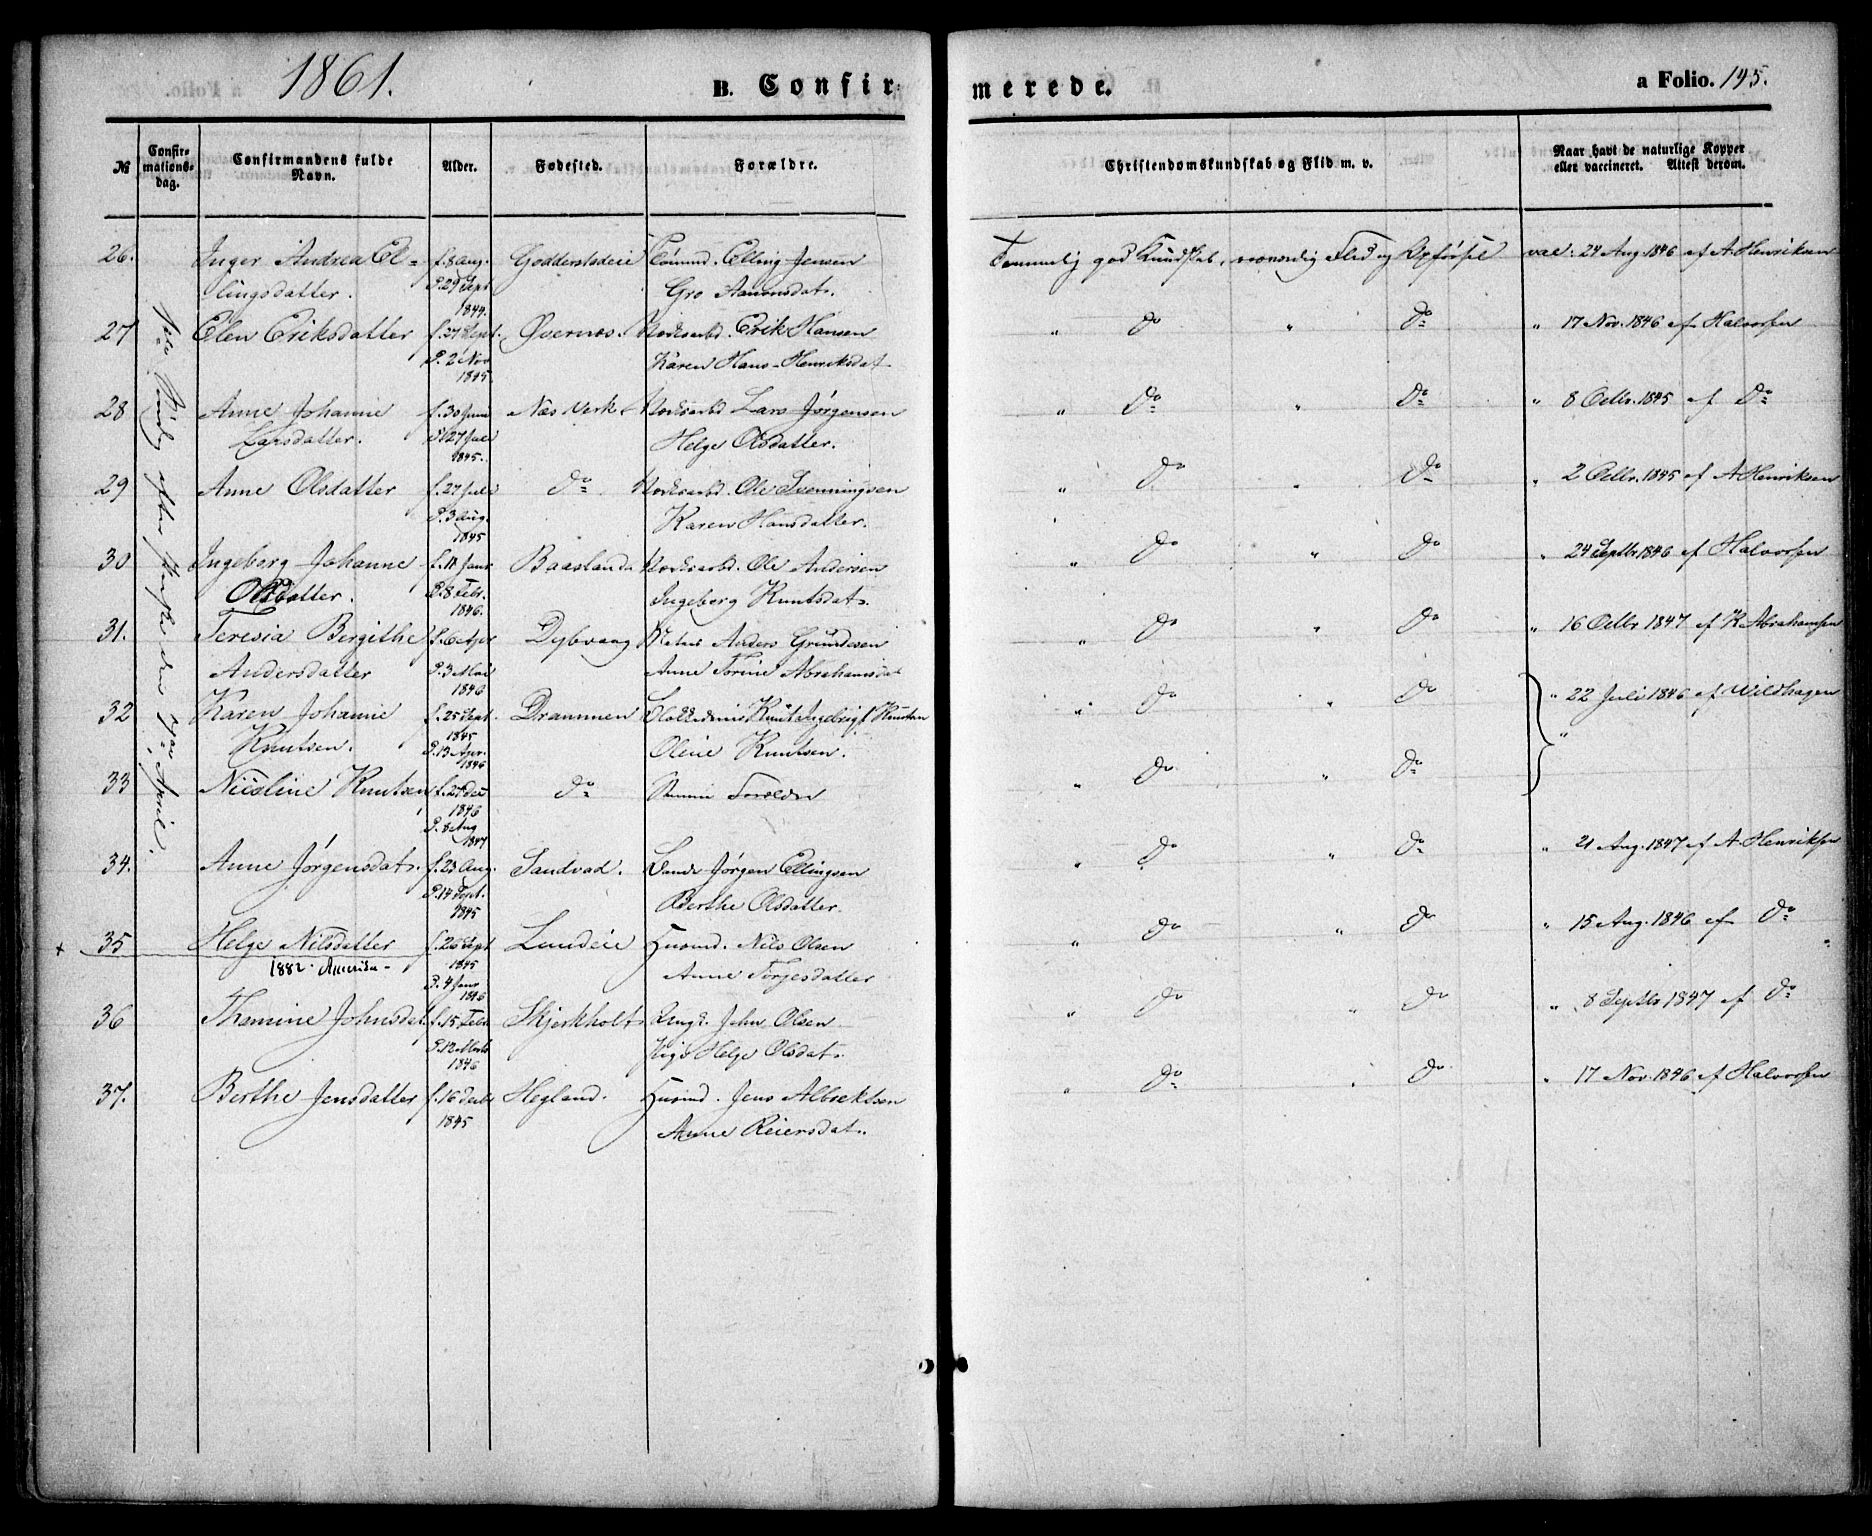 1861.
B. Confirmerede.
a Folio. 145.
№ Confirmationsdag. Confirmandens fulde Navn. Alder. Fødested. Forældre. Christendomskundskab og Flid m. v. Naar havt de naturlige Kopper eller vaccineret. Attest derom.
Søndag efter Paaske den April.
26. Inger Andrea El- f. 8 Aug. Elling Jensen Temmelig god Kundskab, Flid og Opførsel vac: 24 Aug. 1846 af A. Henriksen
lingsdatter. 29 Sept Gro Aanonsdat.
1844.
27 Elen Eriksdatter f. 27 Sept. Øvernes. Erik Hansen " Do " Do " 17 Nov. 1846 af Halvorsen
2 Nov Karen Hans-Henriksdat
1845.
28 Anne Johanne f. 30 Næs Verk Lars Jørgensen " Do " Do " 8 Octbr. 1845 af Do
Larsdatter. 27 Juli Helge Olsdatter.
1845.
29 Anne Olsdatter f. 27 Juli Do Ole Svenningsen " Do " Do " 2 Octbr. 1845 af A Henriksen
3 Aug. Karen Hansdatter.
1845
30 Ingeborg Johanne f. 11 Janr Baasland Ole Andersen " Do " Do " 24 Septbr 1846 af Halvorsen
Olsdatter. 8 Febr. Ingeborg Knutsdat.
1846.
31. Teresia Bergithe f. 6 Apr Dybvaag Anders Grundesen " Do " Do " 16 Octbr 1847 af K. Abrahamsen
Andersdatter 3 Mai Anne Torine Abrahamsdat
1846
32 Karen Johanne f. 25 Sept. Drammen Knut Ingebrigt Knutsen " Do " Do " 22 Juli 1846 af Wildhagen
1845
Knutsen. 13 Apr. Oline Knutsen. "
1846
33 Nicoline Knutsen f. 27 Dec Do " Do " Do
1846
8 Aug
1847
34. Anne Jørgensdat. f. 23 Aug. Sandvad. Jørgen Ellingsen " Do " Do " 21 Aug. 1847 af A. Henriksen
14 Sept. Berthe Olsdatter.
1845
+ 35 Helge Nilsdatter f. 26 Sept Lundeie Husmd. Nils Olsen " Do " Do " 15 Aug. 1846 af Do
1882. Amerika- 1845
4 Janr Anne Torjesdatter
1846
36 Thomine Johnsdat. f. 15 Febr Skjerkholt John Olsen " Do " Do " 8 Septbr 1847 af Do
12 Marts Helge Olsdat.
1846
37. Berthe Jensdatter f. 16 Decbr Hegland. Husmd. Jens Albrektsen " Do " Do " 17 Nov. 1846 af Halvorsen
1845 Anne Reiersdat.